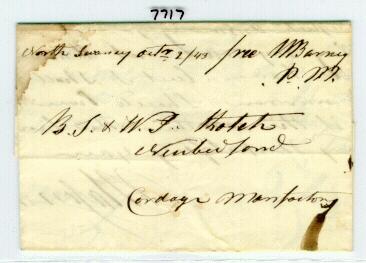 7717
North Swansey Octr 2/43 free M Barney
P. M.
B. S. & W. J. Rotch
New Bedford
Cordage Manfactory